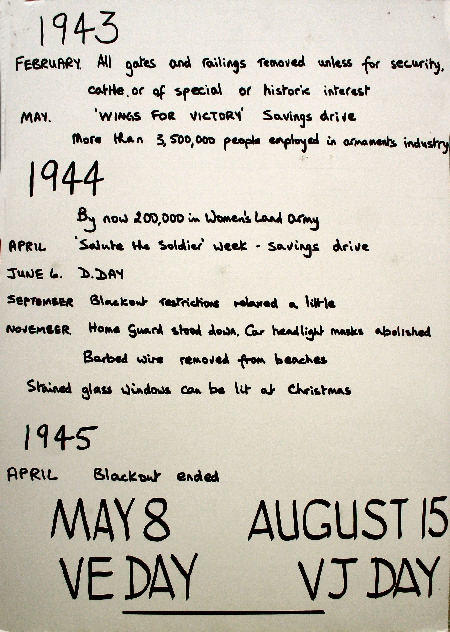 1943
FEBRUARY. All gates and railings removed unless for security,
cattle, or of special or historic interest
MAY. 'WINGS FOR VICTORY' Savings drive
More than 3,500,000 people employed in armaments industry
1944
By now 200,000 in Women's Land Army
APRIL 'Salute the Soldier' week - savings drive
JUNE 6. D.DAY
SEPTEMBER Blackout restrictions relaxed a little
NOVEMBER Home Guard stood down. Car headlight masks abolished
Barbed wire removed from beaches
Stained glass windows can be lit at Christmas
1945
APRIL Blackout ended
MAY 8 AUGUST 15
VE DAY VJ DAY